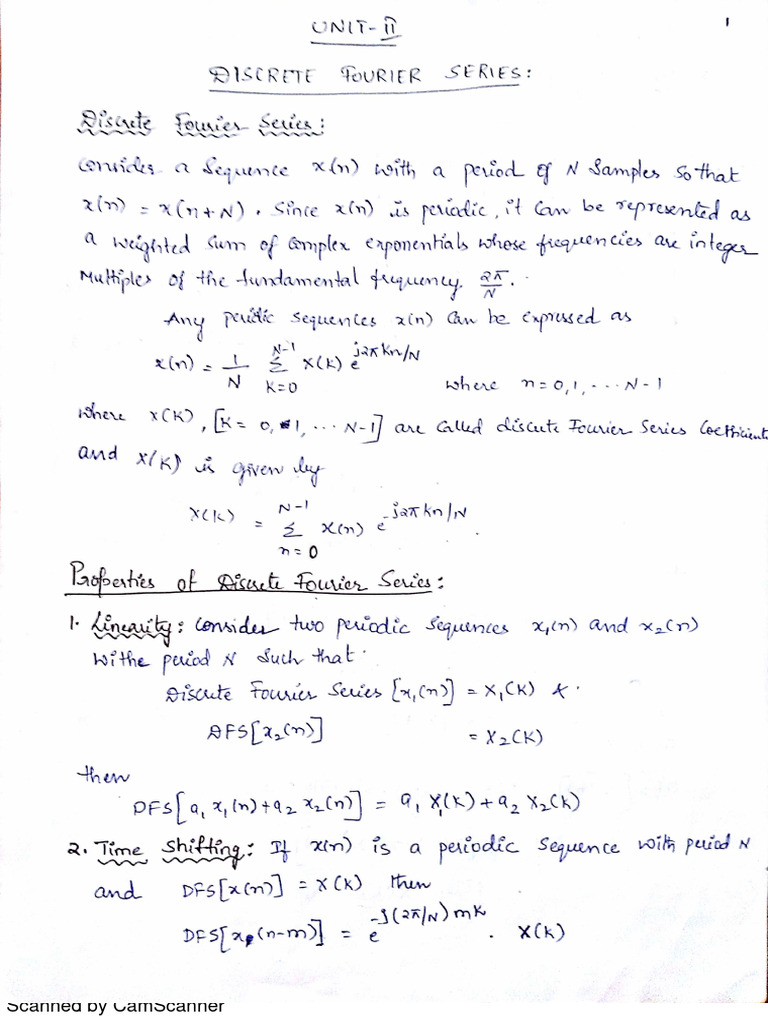 UNIT-II
1
DISCRETE FOURIER SERIES:
Discrete Fourier Series:
Consider a Sequence x(n) with a period of N Samples so that
x(n) = x(n+N). Since x(n) is periodic, it can be represented as
a weighted sum of complex exponentials whose frequencies are integer
Multiples of the fundamental frequency. 2π/N.
Any periodic sequences x(n) can be expressed as
x(n) = 1/N Σ_{K=0}^{N-1} X(K) e^{j2πKn/N} where n=0,1,...N-1
where X(K), [K= 0, 1, ... N-1] are called discrete Fourier Series Coefficients
and X(K) is given by
X(K) = Σ_{n=0}^{N-1} x(n) e^{-j2πkn/N}.
Properties of Discrete Fourier Series:
1. Linearity: Consider two periodic sequences x₁(n) and x₂(n)
Withe period N Such that
Discrete Fourier Series [x₁(n)] = X₁(K) &
DFS[x₂(n)] = X₂(K)
then
DFS[a₁ x₁(n)+a₂ x₂(n)] = a₁ X₁(K)+a₂ X₂(K)
2. Time Shifting: If x(n) is a periodic sequence with period N
and DFS[x(n)] = X(K) then
DFS[x(n-m)] = e^{-j(2π/N)mK} . X(K)
Scanned by CamScanner